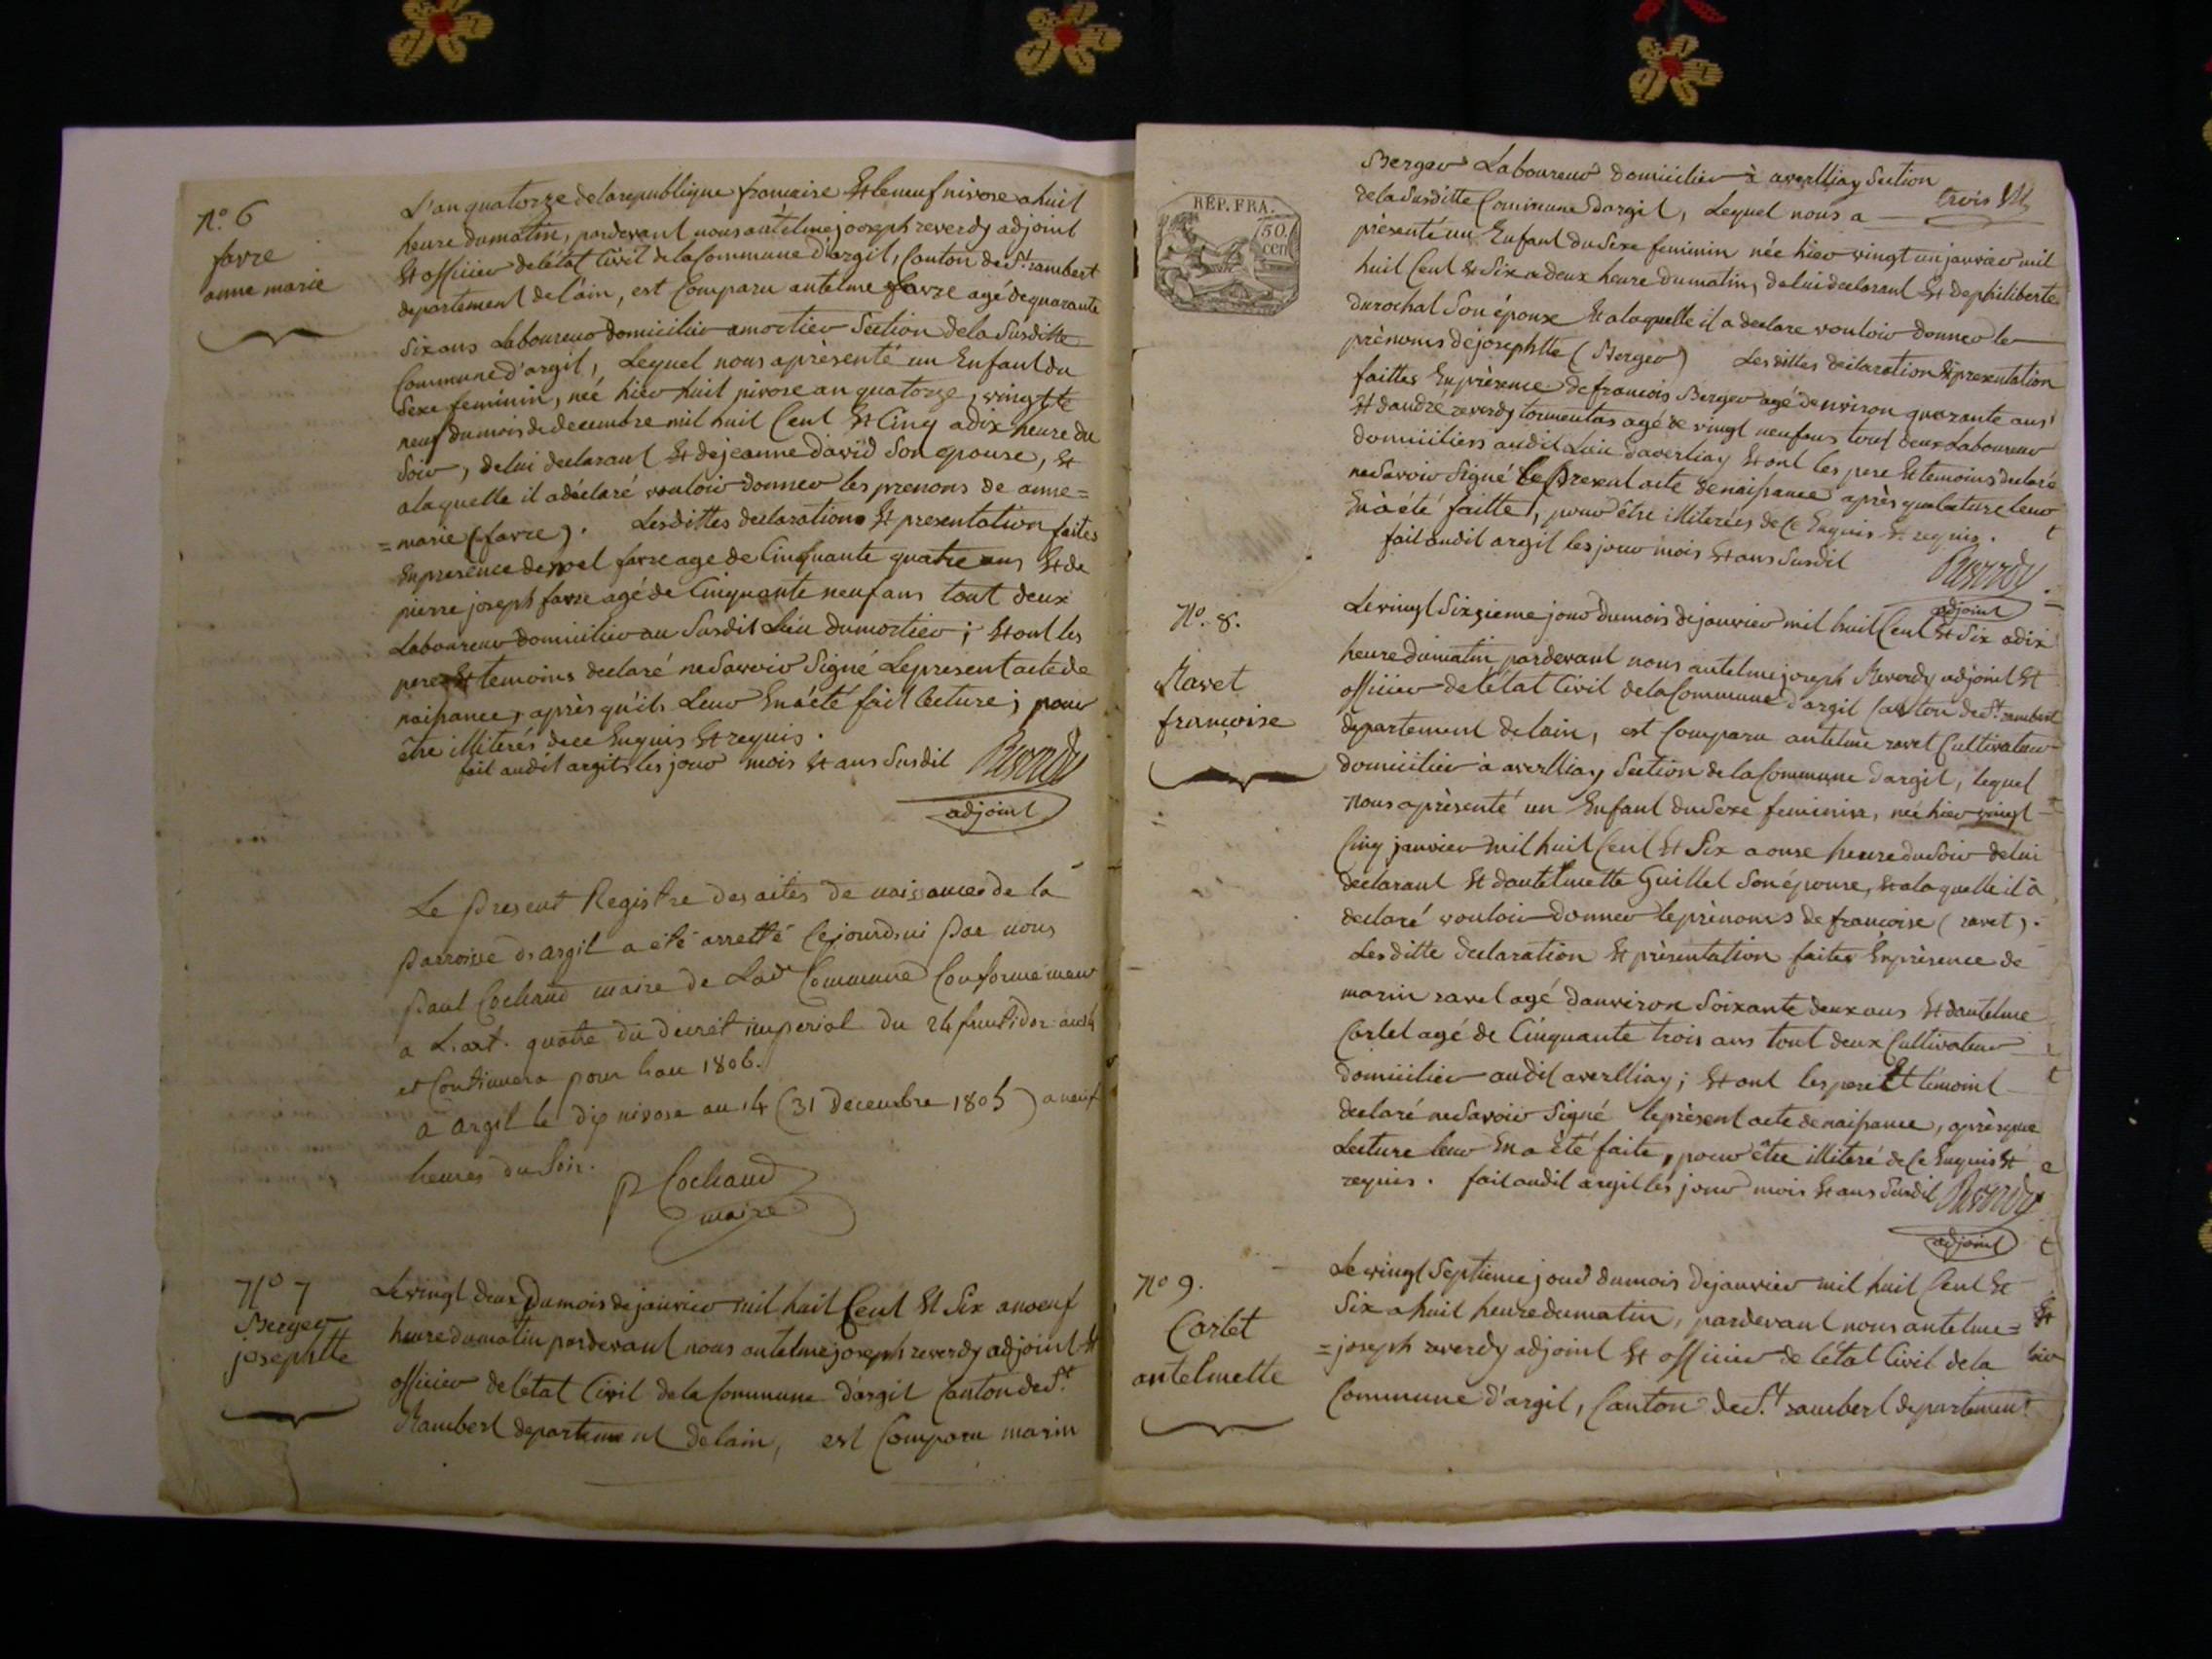 N.º 6
favre
anne marie
L'an quatorze de la republique francaise Et le neuf nivose a huit
heure du matin, pardevant nous antelme jooseph reverdy adjoint
Et officier de l'état Civil de la Commune d'argil, Canton de St. rambert
departement de l'ain, est Comparu antelme favre agé de quarante
Six ans Laboureur domicilier a mortier Section de la Susditte
Commune d'argil, Lequel nous a présenté un Enfant du
Sexe feminin, née hier huit nivose an quatorze, vingt te
neuf du mois de decembre mil huit Cent Et Cinq a dix heure du
Soir, de lui declarant Et de jeanne david Son epouse, Et
a laquelle il a déclaré vouloir donner les prenons de anne=
=marie (favre). Lesdittes declarations Et presentation faites
En presence de noel favre age de Cinquante quatre ans Et de
pierre joseph favre agé de Cinquante neuf ans tout deux
Laboureur domicilier au Susdit Lieu du mortier; Et ont les
pere Et temoins declaré ne Savoir Signé Le present acte de
naissance, après qu'ils Leur En a été fait lecture; pour
être illiterés de ce Enquis Et requis.
fait audit argit les jour mois Et ans Susdit Reverdy
adjoint
Le present Registre des actes de naissances de la
parroisse d'argil a été arretté Cejourdhui par nous
paul Cochaud maire de Lad. Commune Conformement
a L'art. quatre du decret imperial du 24 fructidor an 14
et Continuera pour L'an 1806.
a argil le dix nivose an 14 (31 Decembre 1805) a neuf
heures du Soir.
P Cochaud
maire
Nº 7
Berger
josephtte
Le vingt deux Du mois de janvier mil huit Cent Et Six a noeuf
heure du matin pardevant nous antelme joseph reverdy adjoint Et
officier de l'état Civil de la Commune d'argil Canton de St.
Rambert departement de lain, est Comparu marin
REP. FRA.
50.
cen
trois
Berger Laboureur domicilier à averlliay Section
de la Susditte Commune d'argil, Lequel nous a
présenté un Enfant du Sexe feminin née hier vingt un janvier mil
huit Cent Et Six a deux heure du matin, de lui declarant Et de philiberte
durochat Son épouse Et a laquelle il a declare vouloir donner les
prénoms de josephtte (Berger) Lesdittes declaration Et presentation
faittes En présence de francois Berger agé denviron quarante ans
Et dandré reverdy tormentas agé de vingt neuf ans tout deux Laboureur
domiciliers audit Lieu d'averliay Et ont les pere Et temoins declaré
ne Savoir Signé Le Present acte de naissance après que lecture leur
En à été faitte, pour être illiterées de Ce Enquis Et requis.
fait audit argil les jour mois Et ans Susdit
Reverdy
adjoint
Nº. 8.
Ravet
françoise
Le vingt Sixzieme jour du mois de janvier mil huit Cent Et Six a dix
heure du matin pardevant nous antelme joseph Reverdy adjoint Et
officier de l'état Civil de la Commune d'argil Canton de St. rambert
departement de lain, est Comparu antelme ravet Cultivateur
domicilier à averlliay Section de la Commune d'argil, lequel
Nous a présenté un Enfant du Sexe feminin, née hier vingt
Cinq janvier mil huit Cent Et Six a onse heure du Soir de lui
declarant Et d'antelmette Guillet Son épouse, Et a laquelle il à
declaré vouloir donner le prénoms de francoise (ravet).
Lesditte declaration Et présentation faites En présence de
marin ravet agé d'anviron Soixante deux ans Et d'antelme
Cartet agé de Cinquante trois ans tout deux Cultivateur
domicilier audit averlliay; Et ont les pere Et témoint
declaré ne Savoir Signé le présent acte de naissance, après que
Lecture leur En a été faite, pour être illiteré de Ce Enquis Et
requis. fait audit argil les jour mois Et ans Susdit Reverdy
adjoint
Nº 9.
Cartet
antelmette
Le vingt Septieme jour du mois de janvier mil huit Cent Et
Six a huit heure du matin, pardevant nous antelme=
=joseph reverdy adjoint Et officier de l'état Civil de la
Commune d'argil, Canton de St. rambert departement